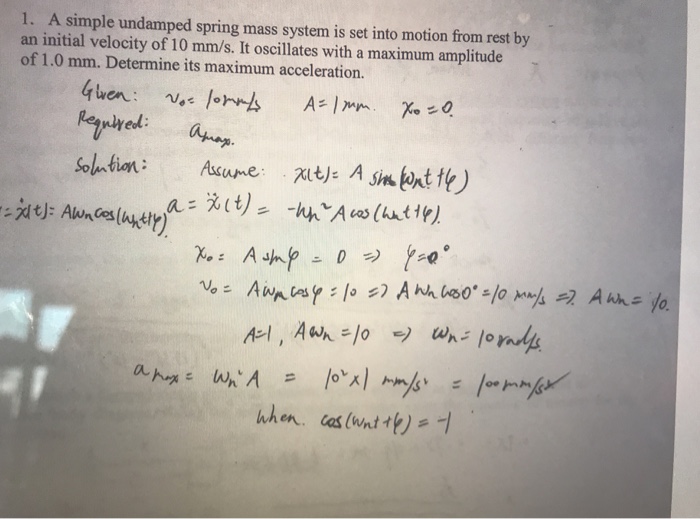 1. A simple undamped spring mass system is set into motion from rest by
an initial velocity of 10 mm/s. It oscillates with a maximum amplitude
of 1.0 mm. Determine its maximum acceleration.
Given: v₀= 10mm/s A=1mm. x₀=0.
Required: amax.
Solution: Assume: x(t)= A sin(ωnt+φ)
=ẋ(t)= Aωncos(ωnt+φ) a = ẍ(t) = -ωn²A cos(ωnt+φ).
x₀= A sinφ = 0 ⇒ φ=0°
v₀= Aωncosφ=10 ⇒ Aωncos0°=10 mm/s ⇒ Aωn=10.
A=1, Aωn=10 ⇒ ωn=10rad/s.
amax= ωn²A = 10²×1 mm/s² = 100mm/s²
When. cos(ωnt+φ)=-1